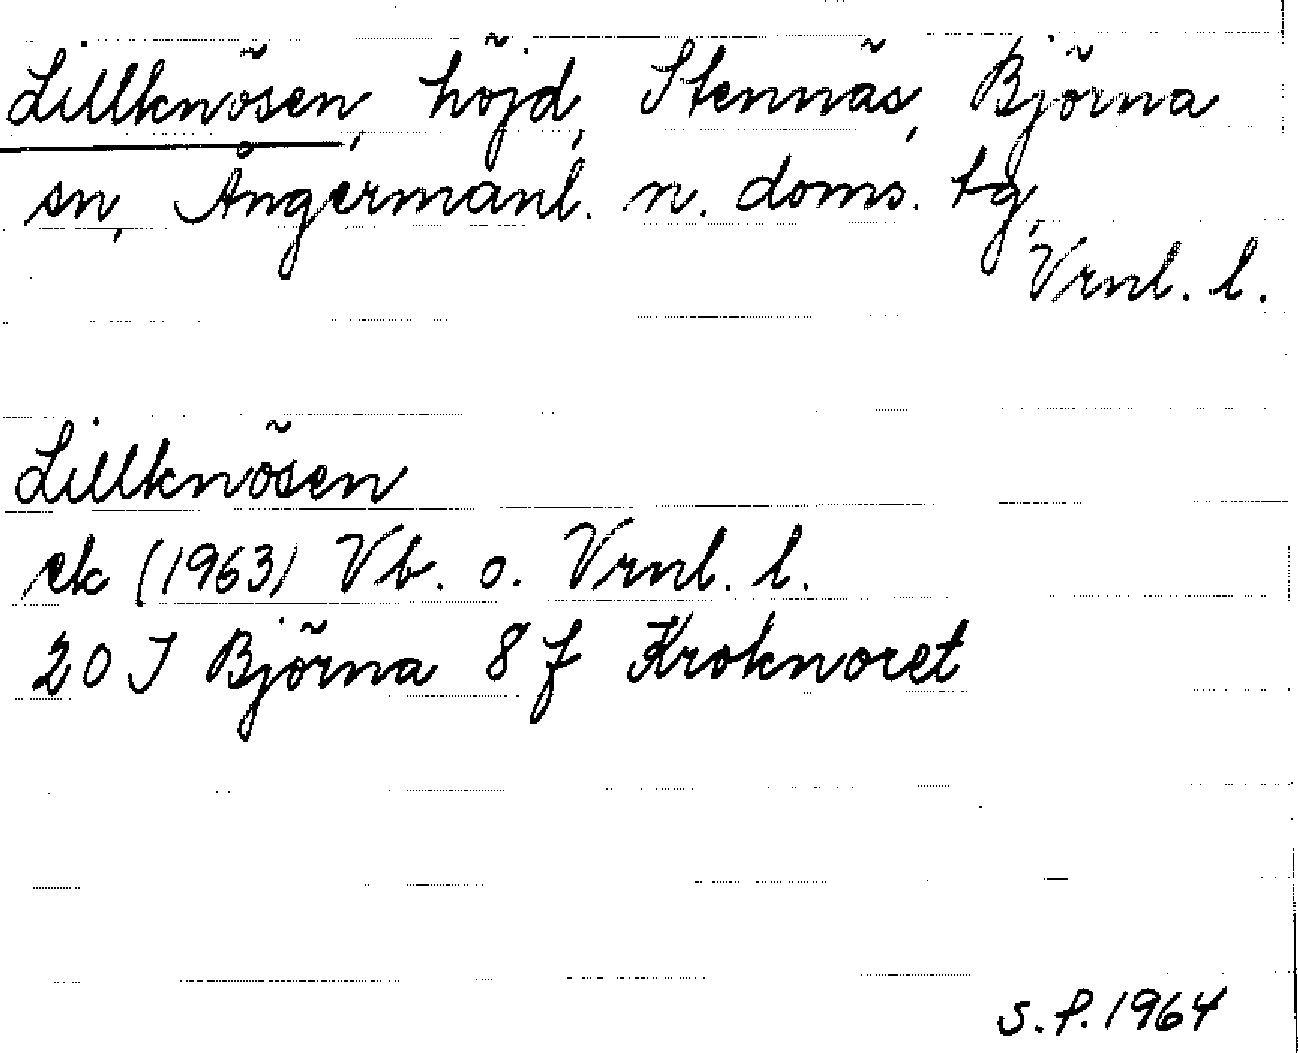 Lillknösen, höjd, Stennäs, Björna
sn, Ångermanl. n. doms. tg,
Vrnl. l.
Lillknösen
ek (1963) Vb. o. Vrnl. l.
20 J Björna 8 f Kroknoret
S.P. 1964